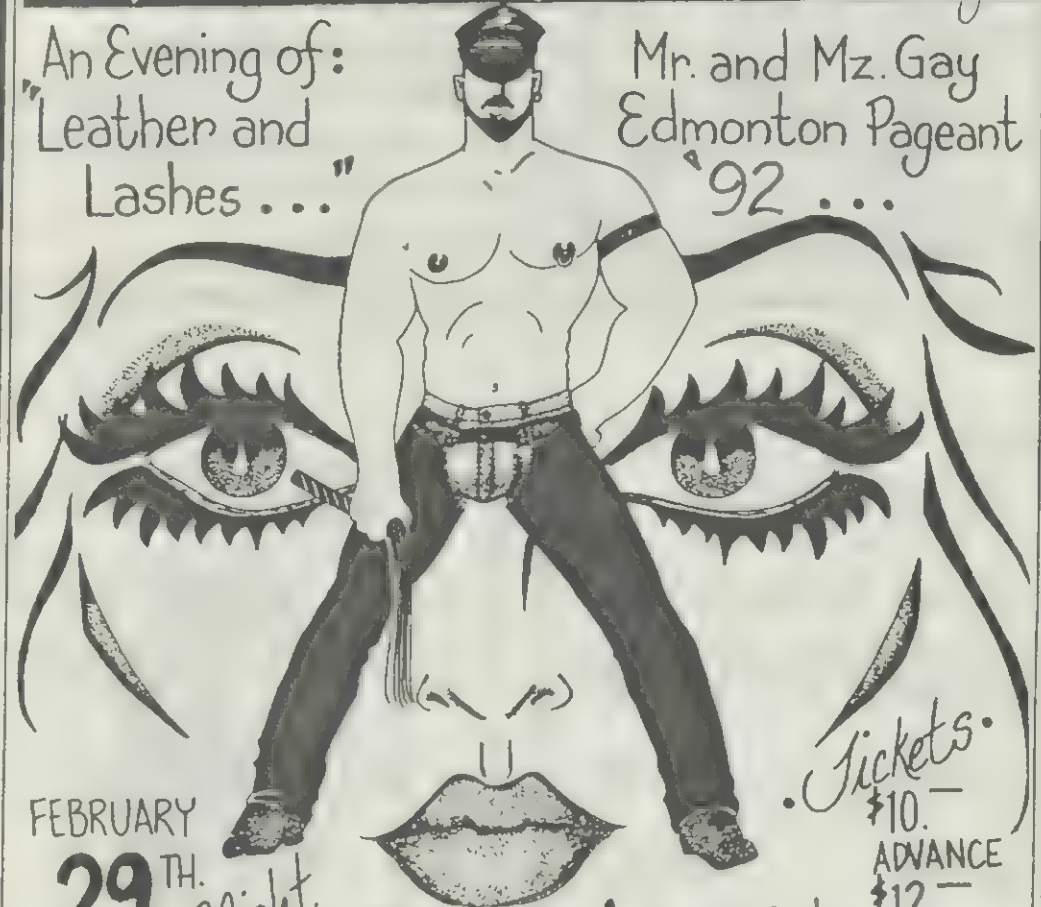 An Evening of:
"Leather and
Lashes..."
Mr. and Mz. Gay
Edmonton Pageant
'92...
FEBRUARY
29TH.
Tickets
$10.—
ADVANCE
$12—